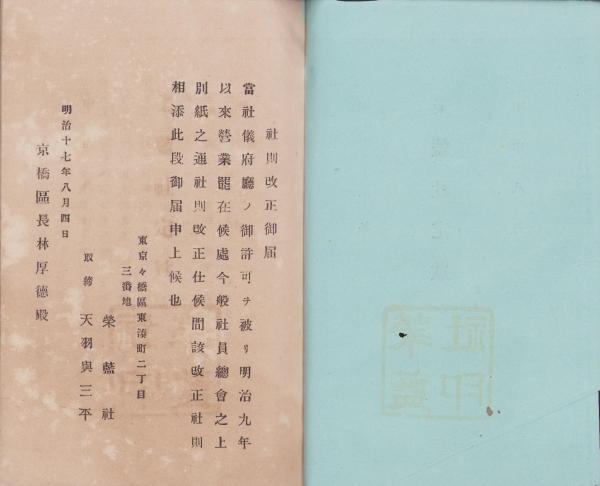 社則改正御届
當社儀府廳ノ御許可ヲ被リ明治九年
以來營業罷在候處今般社員總會之上
別紙之通社則改正仕候間該改正社則
相添此段御届申上候也
東京々橋區東湊町二丁目
三番地
榮藍社
取締 天羽與三平
明治十七年八月四日
京橋區長林厚德殿